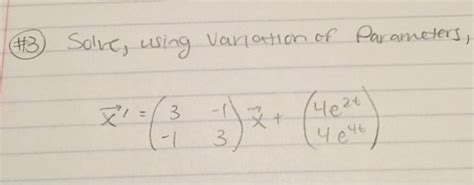 #3 Solve, using Variation of Parameters,
x⃗′ = (3 -1; -1 3) x⃗ + (4e^{2t}; 4e^{4t})